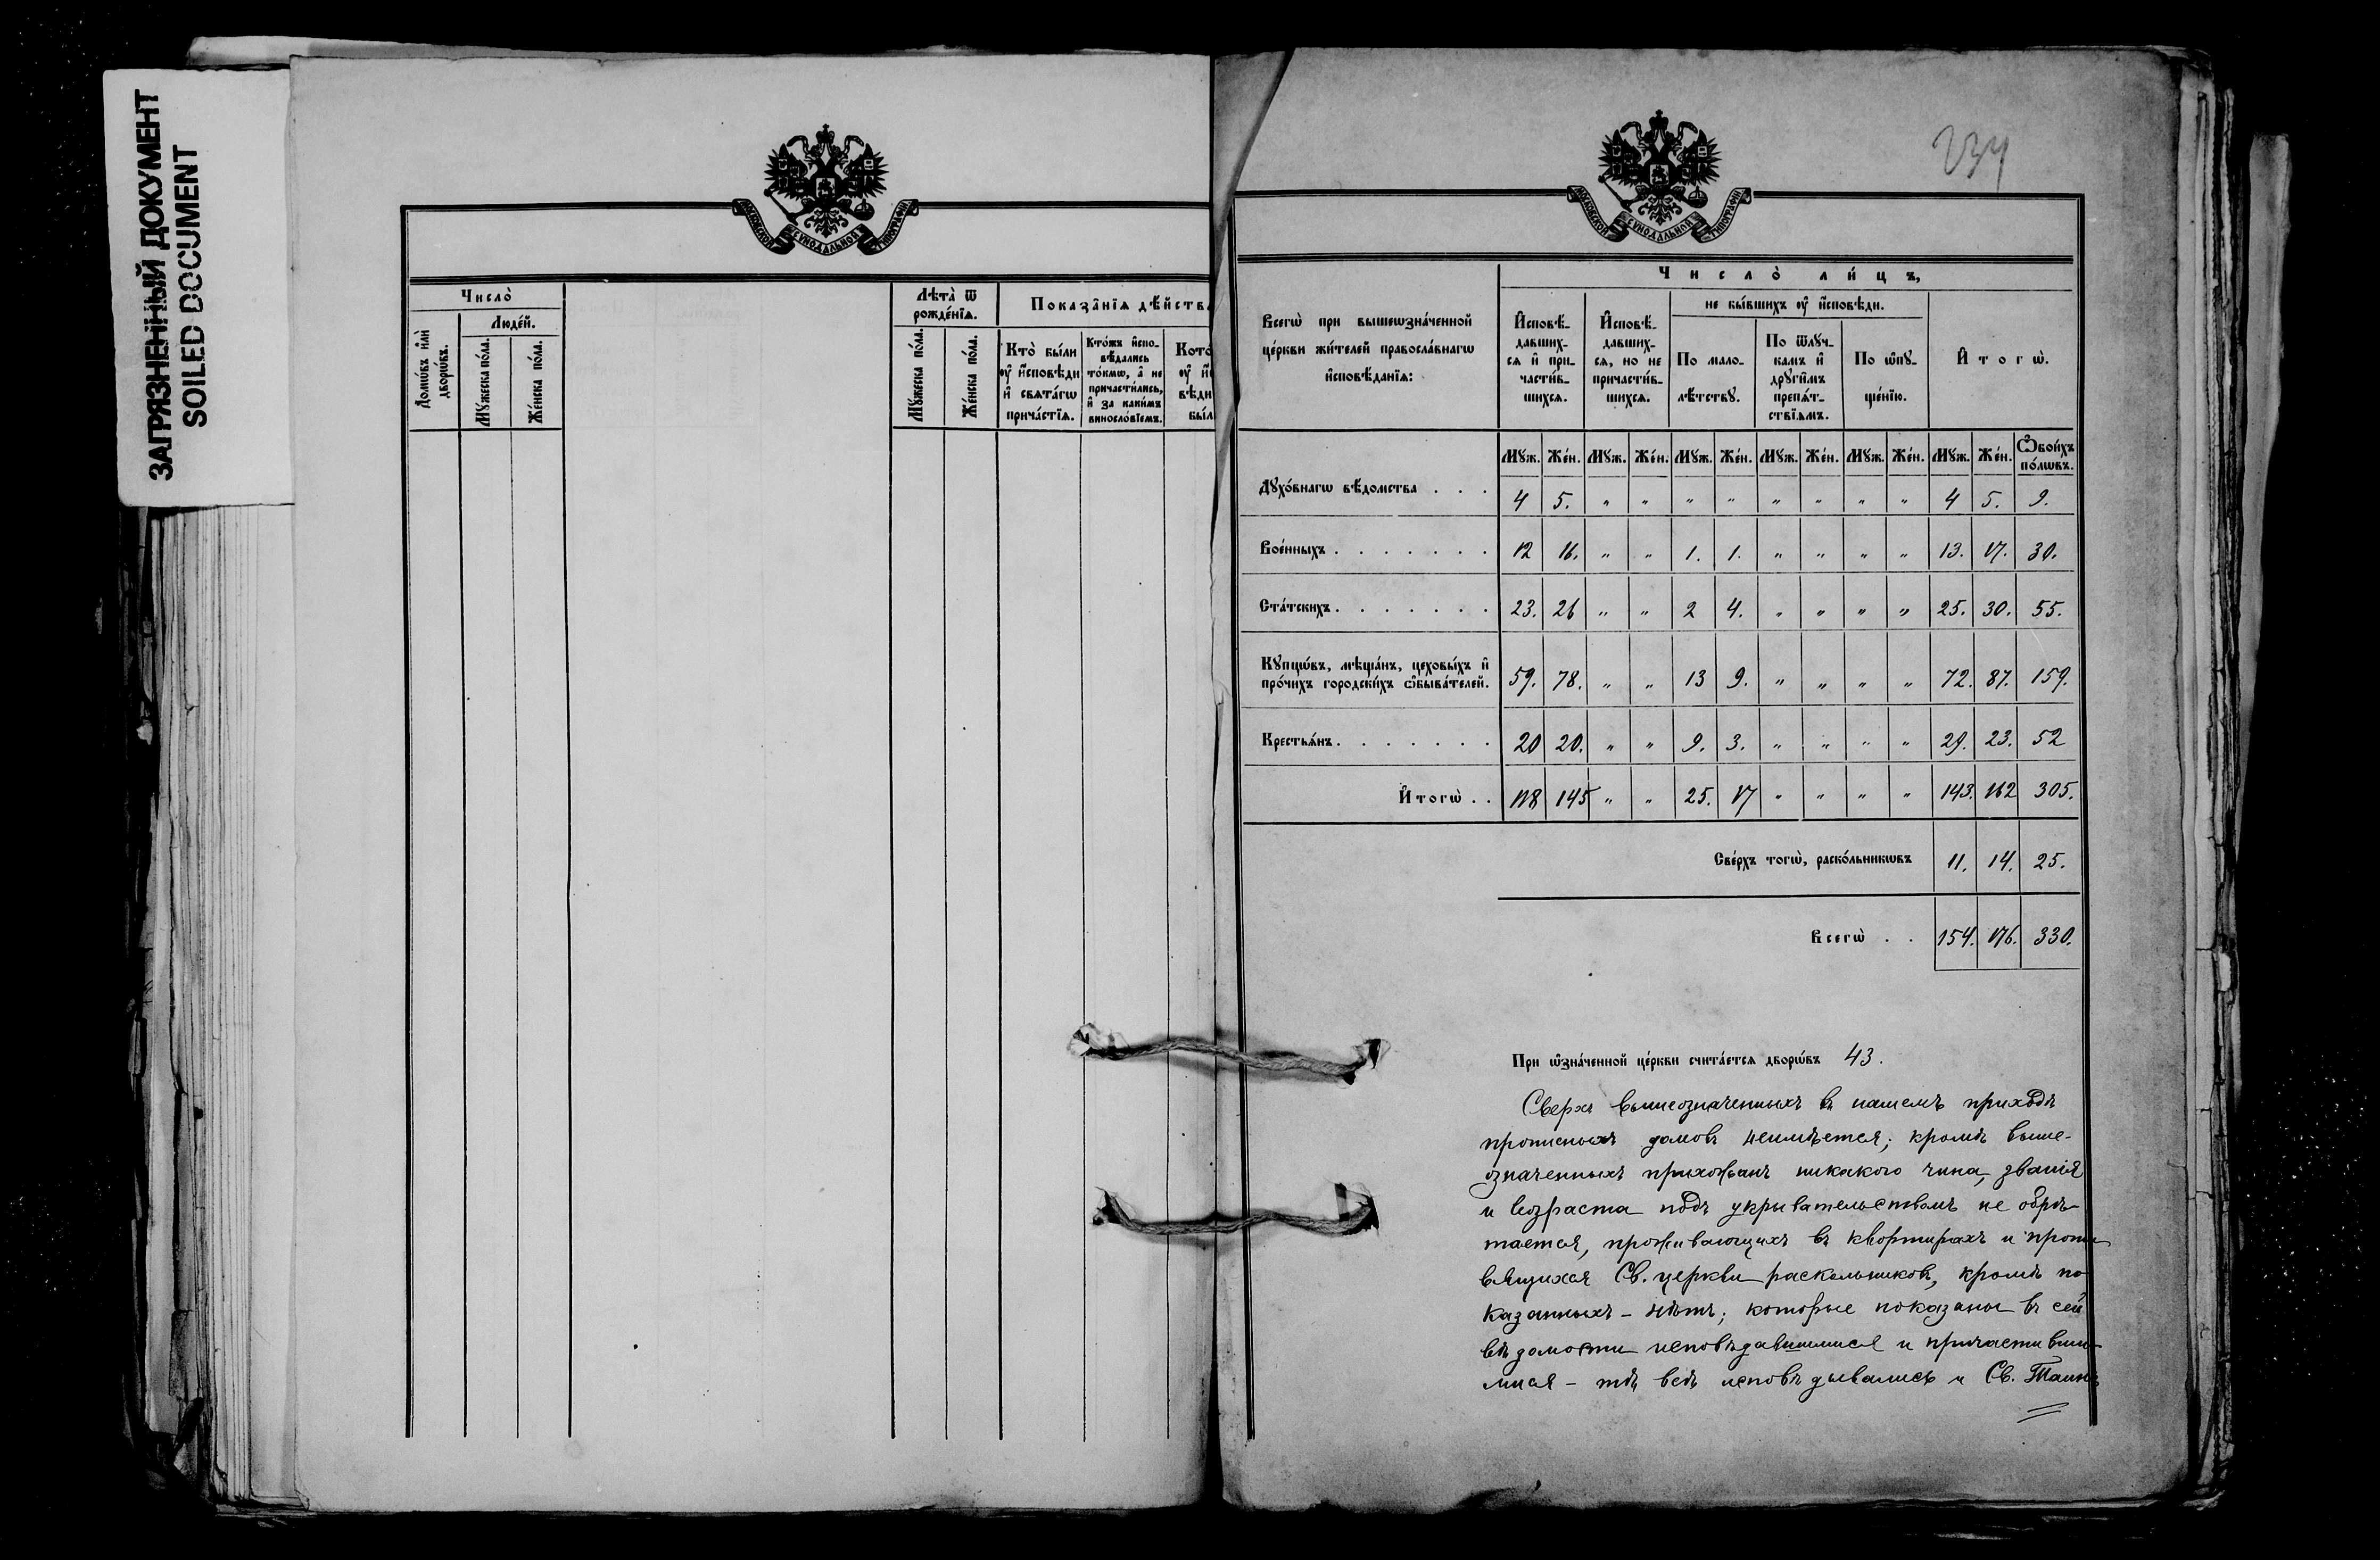 ЗАГРЯЗНЕННЫЙ ДОКУМЕНТ
SOILED DOCUMENT
МОСКОВСКОЙ СУНОДАЛЬНОЙ ТИПОГРАФІИ
Число̀
Домѡ́въ и҆лѝ дворѡ́въ.
Люде́й.
Мꙋ́жеска по́ла.
Же́нска по́ла.
Лѣта̀ ѿ рожде́нїѧ.
Мꙋ́жеска по́ла.
Же́нска по́ла.
Показа̑нїѧ дѣ́йств
Кто̀ бы́ли оу҆ и҆́сповѣди и҆ свѧта́гѡ прича́стїѧ.
Кто́жъ и҆сповѣ́дались то́кмѡ, а҆ не причасти́лись, и҆ за каки́мъ винослов́їемъ.
Кото
оу҆ и҆́
вѣди
был
234
МОСКОВСКОЙ СУНОДАЛЬНОЙ ТИПОГРАФІИ
Всегѡ̀ при вышеѡзна́ченной це́ркви жи́телей правосла́внагѡ и҆сповѣ́данїѧ:
Число̀ ли́цъ,
И҆сповѣ́давшихсѧ и҆ причасти́вшихсѧ.
И҆сповѣ́давшихсѧ, но не причасти́вшихсѧ.
не бы́вшихъ оу҆ и҆́сповѣди.
По малолѣ́тствꙋ.
По ѿлꙋчкамъ и҆ дрꙋги̑мъ препѧ́тствїѧмъ.
По ѡ҆пꙋще́нїю.
И҆тогѡ̀.
Мꙋж. Же́н. Мꙋж. Же́н. Мꙋж. Же́н. Мꙋж. Же́н. Мꙋж. Же́н. Мꙋж. Же́н. Ѻ҆бои́хъ по́лѡвъ.
Дꙋхо́внагѡ вѣ́домства . . . 4 5. " " " " " " " " 4 5. 9.
Вое́нныхъ . . . . . . . 12 16. " " 1. 1. " " " " 13. 17. 30.
Ста́тскихъ . . . . . . . 23. 26 " " 2 4. " " " " 25. 30. 55.
Кꙋпцѡ́въ, мѣща́нъ, цеховы́хъ и҆ про́чихъ городски́хъ ѡ҆быва́телей. 59. 78. " " 13 9. " " " " 72. 87. 159.
Крестьѧ́нъ . . . . . . . 20 20. " " 9. 3. " " " " 29. 23. 52
И҆тогѡ̀ . . 118 145 " " 25. 17 " " " " 143. 162 305.
Све́рхъ тогѡ̀, раско́льникѡвъ 11. 14. 25.
Всегѡ̀ . . 154. 176. 330.
При ѡ҆зна́ченной це́ркви счита́етсѧ дворѡ́въ 43.
Сверхъ вышеозначенныхъ въ нашемъ приходѣ
прописныхъ домовъ неимѣется; кромѣ выше-
означенныхъ прихожанъ никакого чина, званія
и возраста подъ укрывательствомъ не обрѣ-
тается, проживающихъ въ квортирахъ и проти
вящихся Св. церкви раскольниковъ, кромѣ по
казанныхъ - нѣтъ; которые показаны въ сей
вѣдомости исповѣдавшимися и причастивши-
мися - тѣ всѣ исповѣдывались и Св. Таинъ